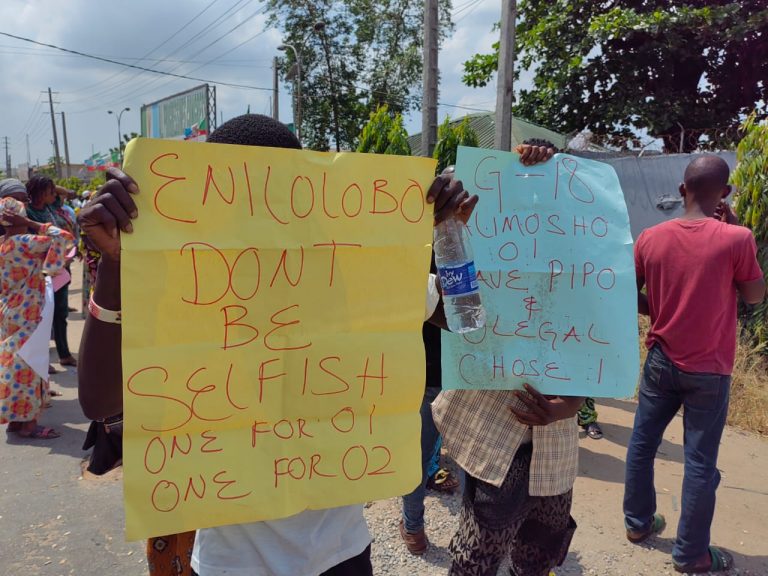 ENILOLOBO
DONT
BE
SELFISH
ONE FOR 01
ONE FOR 02
G-18
ALIMOSHO
01
PIPO
&
CHOSE :1